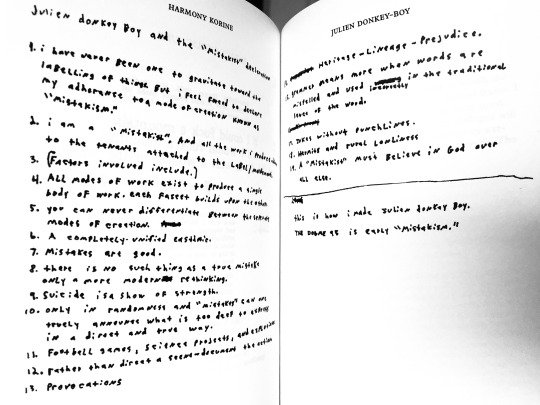 HARMONY KORINE
Julien donkey Boy and the "Mistakist" declaration
1. i have never been one to gravitate toward the
labelling of things But i feel forced to declare
my adherance to a mode of creation known as
"Mistakism."
2. i am a "Mistakist" And all the work i produce
to the tenants attached to the label/
3. (Factors involved include.)
4. All modes of work exist to produce a single
body of work. each faccet builds upon the other.
5. you can never differentiate Between the
modes of creation.
6. A completely-unified easthetic.
7. Mistakes are good.
8. there is no such thing as a true mistake
only a more modern rethinking.
9. Suicide is a show of strength.
10. only in randomness and "mistakes" can one
truely announce what is too deep to express
in a direct and true way.
11. Football games, science projects, and explosions
12. rather than direct a scene-document the action
13. Provocations
JULIEN DONKEY-BOY
Heritage-Lineage-Prejudice.
Grammer means more when words are
mispelled and used in the traditional
sense of the word.
Jokes without Punchlines.
Hermits and rural Lonliness
A "Mistakist" must Believe in God over
all else.
this is how i made Julien donkey Boy.
is early "Mistakism."